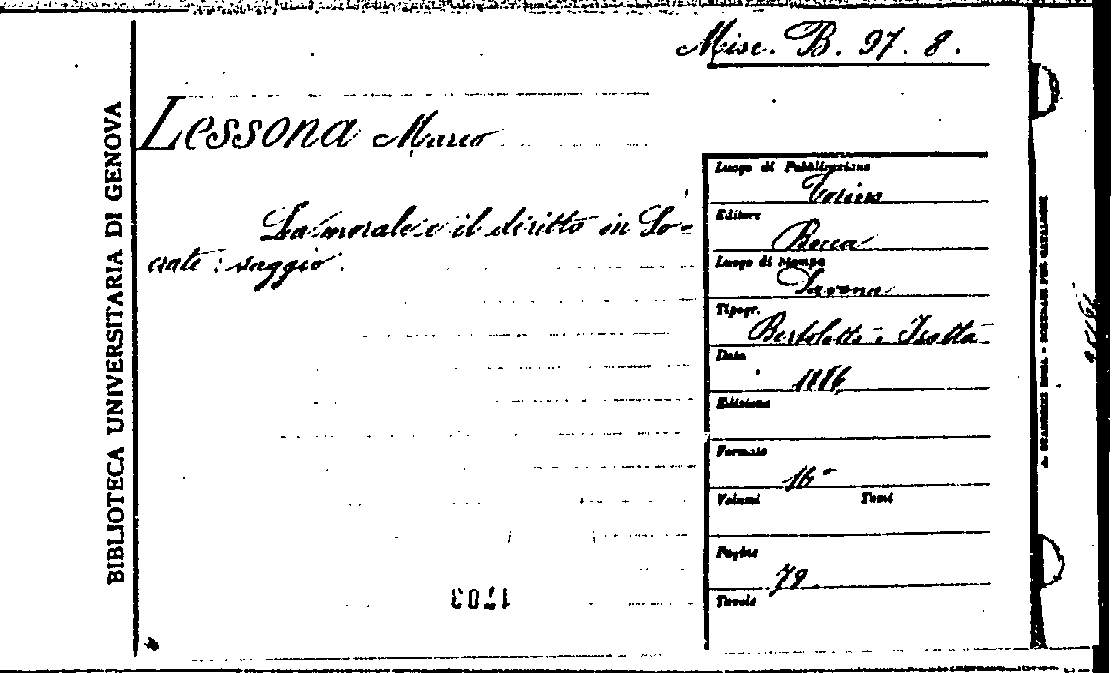 Misc. B. 97. 8.
BIBLIOTECA UNIVERSITARIA DI GENOVA
Lessona Marco
La morale e il diritto in So=
crate: saggio.
Luogo di Pubblicazione
Torino
Editore
Bocca
Luogo di stampa
Savona
Tipogr.
Bertolotto e Isotta
Data
1886
Edizione
Formato
16°
Volumi Tomi
Pagine
79
Tavole